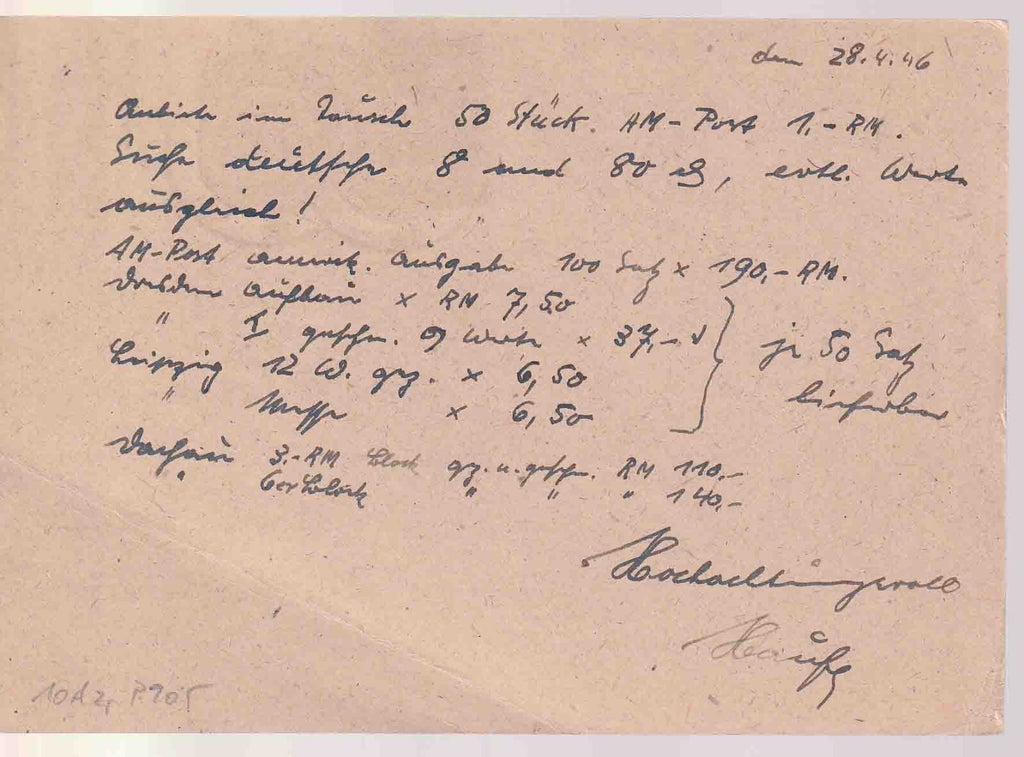 den 28.4.46
Anbiete im Tausch 50 Stück. AM-Post 1,- RM.
Suche deutsche 8 und 80 ₰, evtl. Werte
ausgleich!
AM-Post amerik. Ausgabe 100 Satz x 190,- RM.
Dresden Aufbau x RM 7,50
" I geschn. 9 Werte x 37,-
Leipzig 12 W. gez. x 6,50
" Messe x 6,50
} je 50 Satz
lieferbar
Dachau 3.-RM Block gez. u. geschn. RM 110,-
" 6er Block " " " 140,-
Hochachtungsvoll
P205